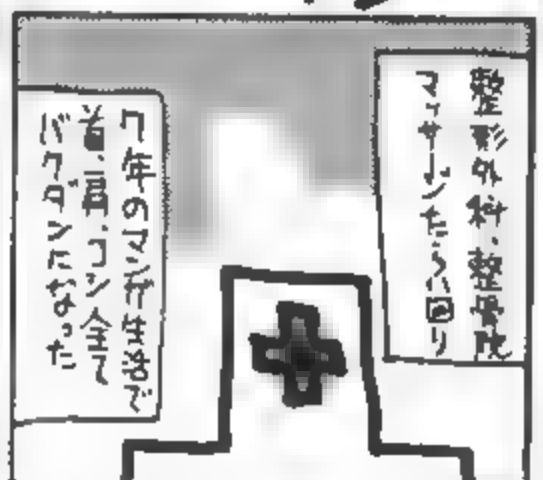 整形外科、整骨院
マッサージたらい回り
7年のマンガ生活で
首、肩、コシ全て
バクダンになった